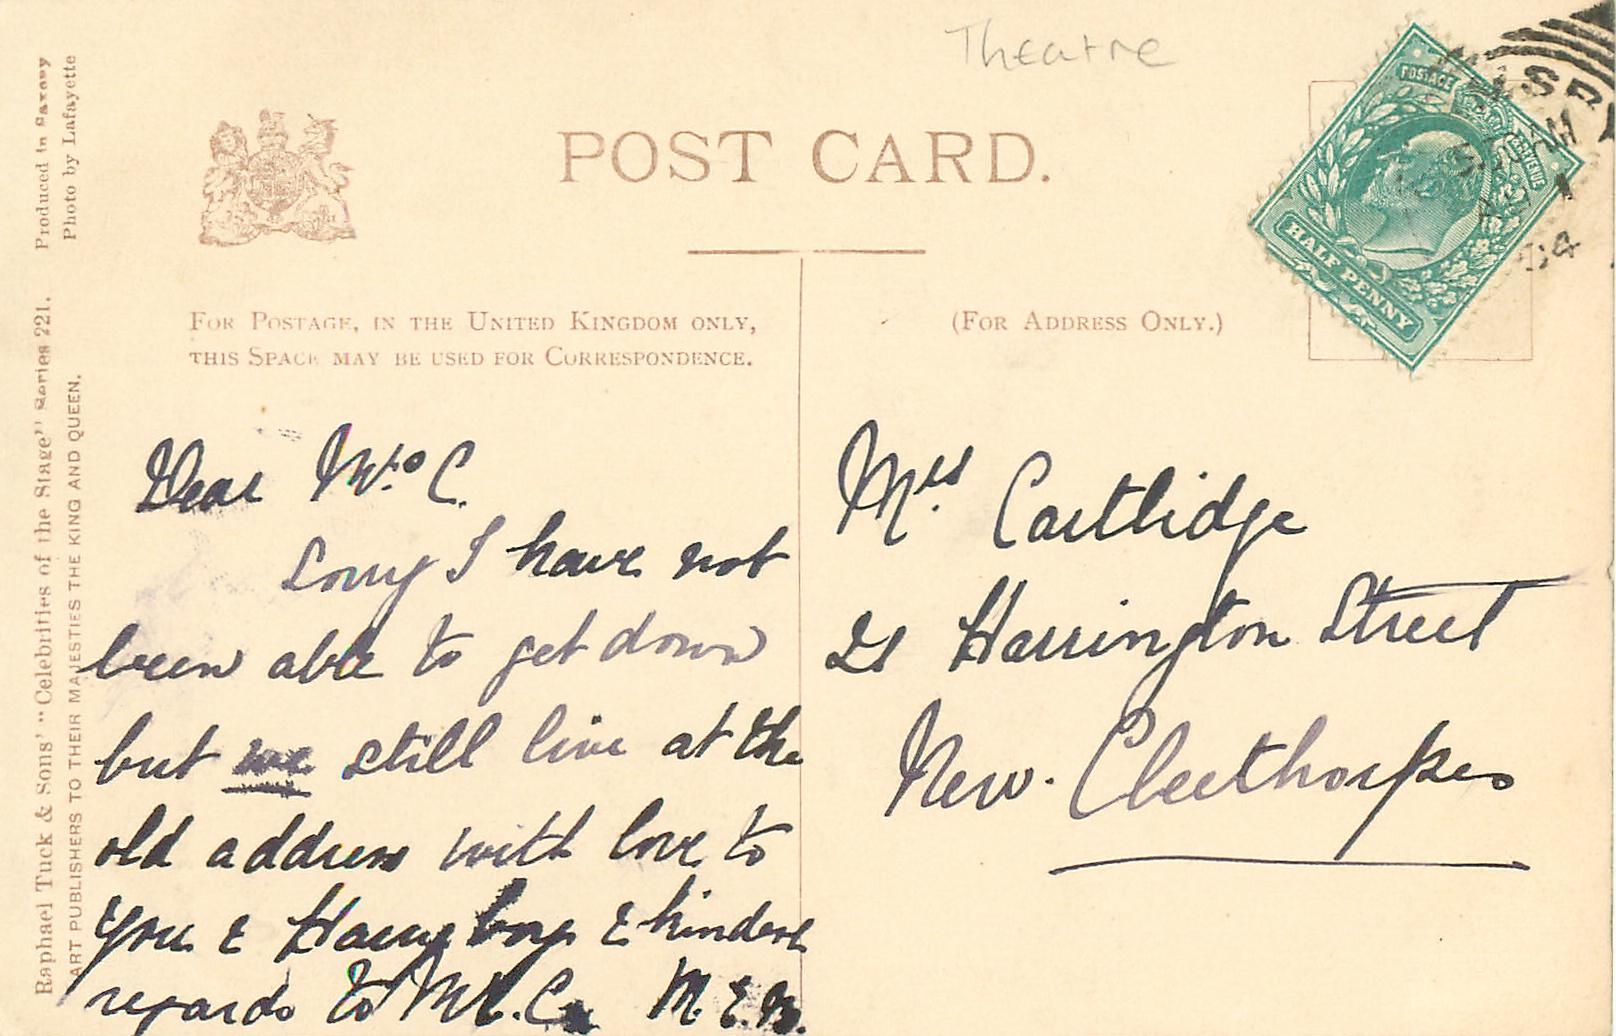 Theatre
POST CARD.
Produced in Saxony
Photo by Lafayette
Raphael Tuck & Sons' "Celebrities of the Stage" Series 221.
ART PUBLISHERS TO THEIR MAJESTIES THE KING AND QUEEN.
POSTAGE
REVENUE
HALF PENNY
FOR POSTAGE, IN THE UNITED KINGDOM ONLY,
THIS SPACE MAY BE USED FOR CORRESPONDENCE.
(FOR ADDRESS ONLY.)
Dear Mrs C.
Sorry I have not
been able to get down
but we still live at the
old address with love to
you & Harry boy & kindest
regards to Mr. C. M.E.B.
Mrs Cartlidge
21 Harrington Street
New. Cleethorpes